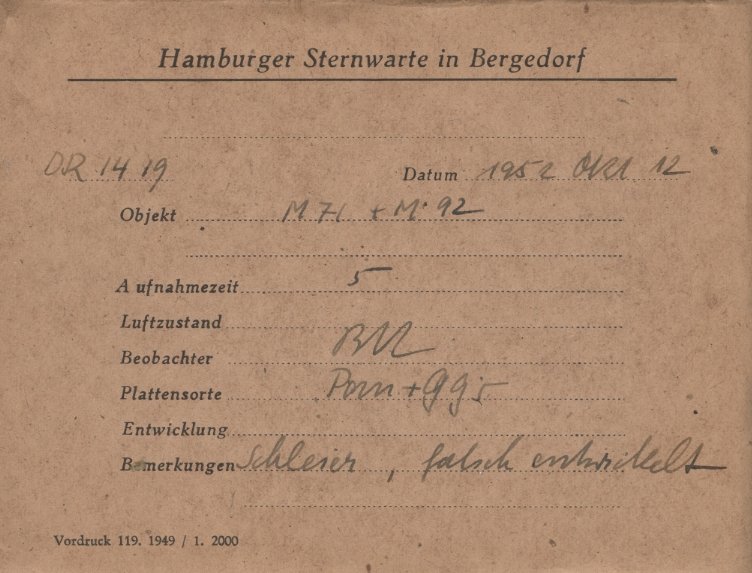 Hamburger Sternwarte in Bergedorf
DR 14 19
Datum 1952 Okt 12
Objekt M 71 + M 92
Aufnahmezeit 5
Luftzustand
Beobachter
Plattensorte Pan + gg5
Entwicklung
Bemerkungen Schleier, falsch entwickelt
Vordruck 119. 1949 / 1. 2000